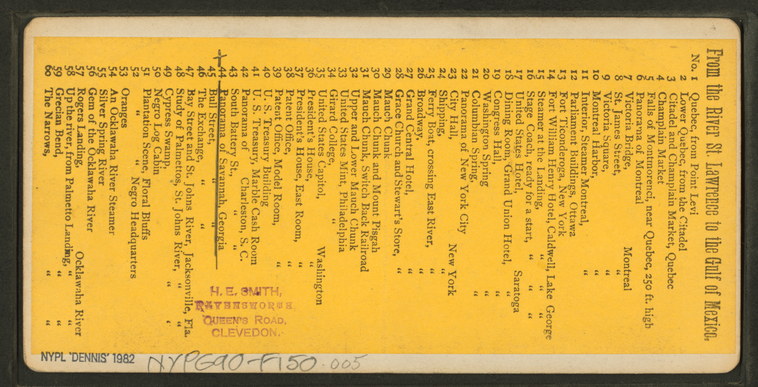 From the River St. Lawrence to the Gulf of Mexico.
No. 1 Quebec, from Point Levi
2 Lower Quebec, from the Citadel
3 Citadel and Champlain Market, Quebec
4 Champlain Market
5 Falls of Montmorenci, near Quebec, 250 ft. high
6 Panorama of Montreal
7 Victoria Bridge, Montreal
8 St. James Street, "
9 Victoria Square, "
10 Montreal Harbor, "
11 Interior, Steamer Montreal, "
12 Parliament Buildings, Ottawa
13 Fort Ticonderoga, New York
14 Fort William Henry Hotel, Caldwell, Lake George
15 Steamer at the Landing, " "
16 Stage Coach, ready for a start, " "
17 United States Hotel, Saratoga
18 Dining Room, Grand Union Hotel, "
19 Congress Hall, "
20 Washington Spring "
21 Columbian Spring, "
22 Panorama of New York City
23 City Hall, New York
24 Shipping, "
25 Ferry Boat, crossing East River, "
26 Broadway, "
27 Grand Central Hotel, "
28 Grace Church and Stewart's Store, "
29 Mauch Chunk
30 Mauch Chunk and Mount Pisgah
31 Mauch Chunk, Switch Back Railroad
32 Upper and Lower Mauch Chunk
33 United States Mint, Philadelphia
34 Girard College, "
35 United States Capitol, Washington
36 President's House, "
37 President's House, East Room, "
38 Patent Office, "
39 Patent Office, Model Room, "
40 U. S. Treasury Building "
41 U. S. Treasury, Marble Cash Room
42 Panorama of Charleston, S. C.
43 South Battery St., "
44 Panorama of Savannah, Georgia
45 Bull Street, " "
46 The Exchange, " "
47 Bay Street and St. Johns River, Jacksonville, Fla.
48 Study of Palmettos, St. Johns River, "
49 Cypress Swamp, " "
50 Negro Log Cabin
51 Plantation Scene, Floral Bluffs
52 " " Negro Headquarters
53 Oranges
54 An Ocklawaha River Steamer
55 Silver Spring River
56 Gem of the Ocklawaha River
57 Rogers Landing, Ocklawaha River
58 Up the river, from Palmetto Landing, " "
59 Grecian Bend, " "
60 The Narrows, " "
H. E. SMITH,
RAVENSWORTH,
QUEEN'S ROAD,
CLEVEDON.
NYPL 'DENNIS' 1982
NYPG90-F150 .005